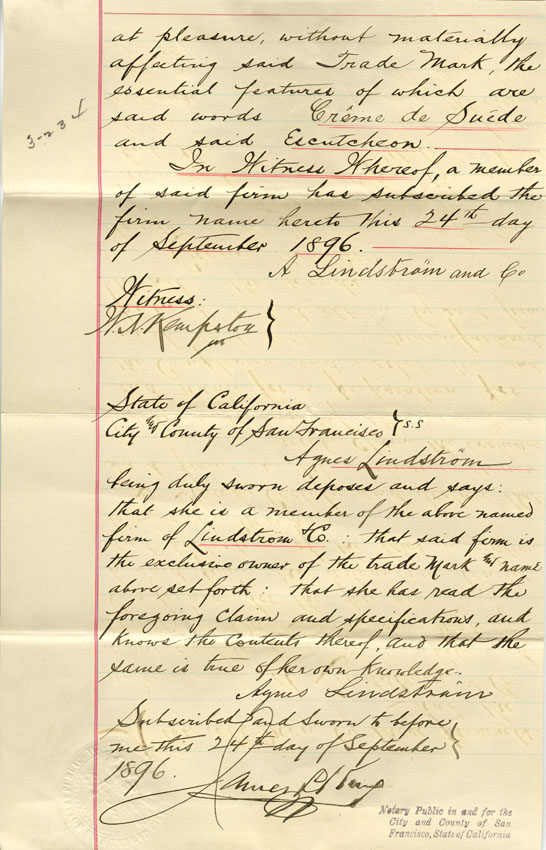 at pleasure, without materially
affecting said Trade Mark, the
essential features of which are
said words Crême de Suéde
and said Escutcheon.
In Witness Whereof, a member
of said firm has subscribed the
firm name hereto this 24th day
of September 1896.
A Lindström and Co
Witness:
Kempston
State of California
City and County of San Francisco } SS
Agnes Lindström
being duly sworn deposes and says:
that she is a member of the above named
firm of Lindstrom & Co. : that said firm is
the exclusive owner of the trade Mark and name
above set forth : that she has read the
foregoing Claim and specifications, and
knows the Contents thereof, and that the
same is true of her own knowledge.
Agnes Lindström
Subscribed and Sworn to before
me this 24th day of September
1896.
James
Notary Public in and for the
City and County of San
Francisco, State of California
3-234